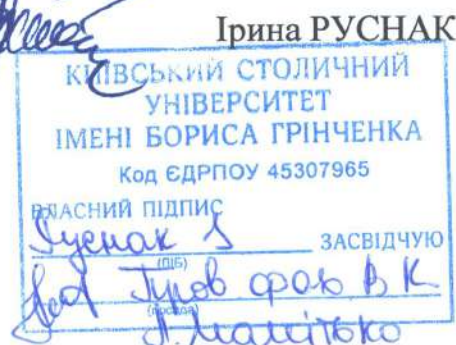 Ірина РУСНАК
КИЇВСЬКИЙ СТОЛИЧНИЙ
УНІВЕРСИТЕТ
ІМЕНІ БОРИСА ГРІНЧЕНКА
Код ЄДРПОУ 45307965
ВЛАСНИЙ ПІДПИС
Руснак І
ЗАСВІДЧУЮ
(ПІБ)
(посада)